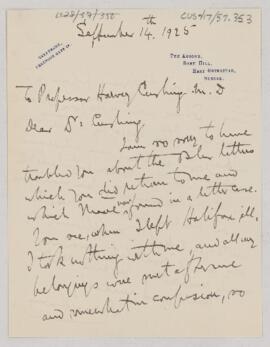 CUS417/57.353
September 14th 1925
THE ADDERS,
BURY HILL,
EAST
SUSSEX.
To Professor Harvey Cushing M. D
Dear Dr: Cushing
I am so sorry to have
troubled you about the Osler letters
which you did return to me and
which I have found in a letter case.
You see, when I left Halifax ill,
I took nothing with me, and all my
belongings were sent after me
and somewhat in confusion, so